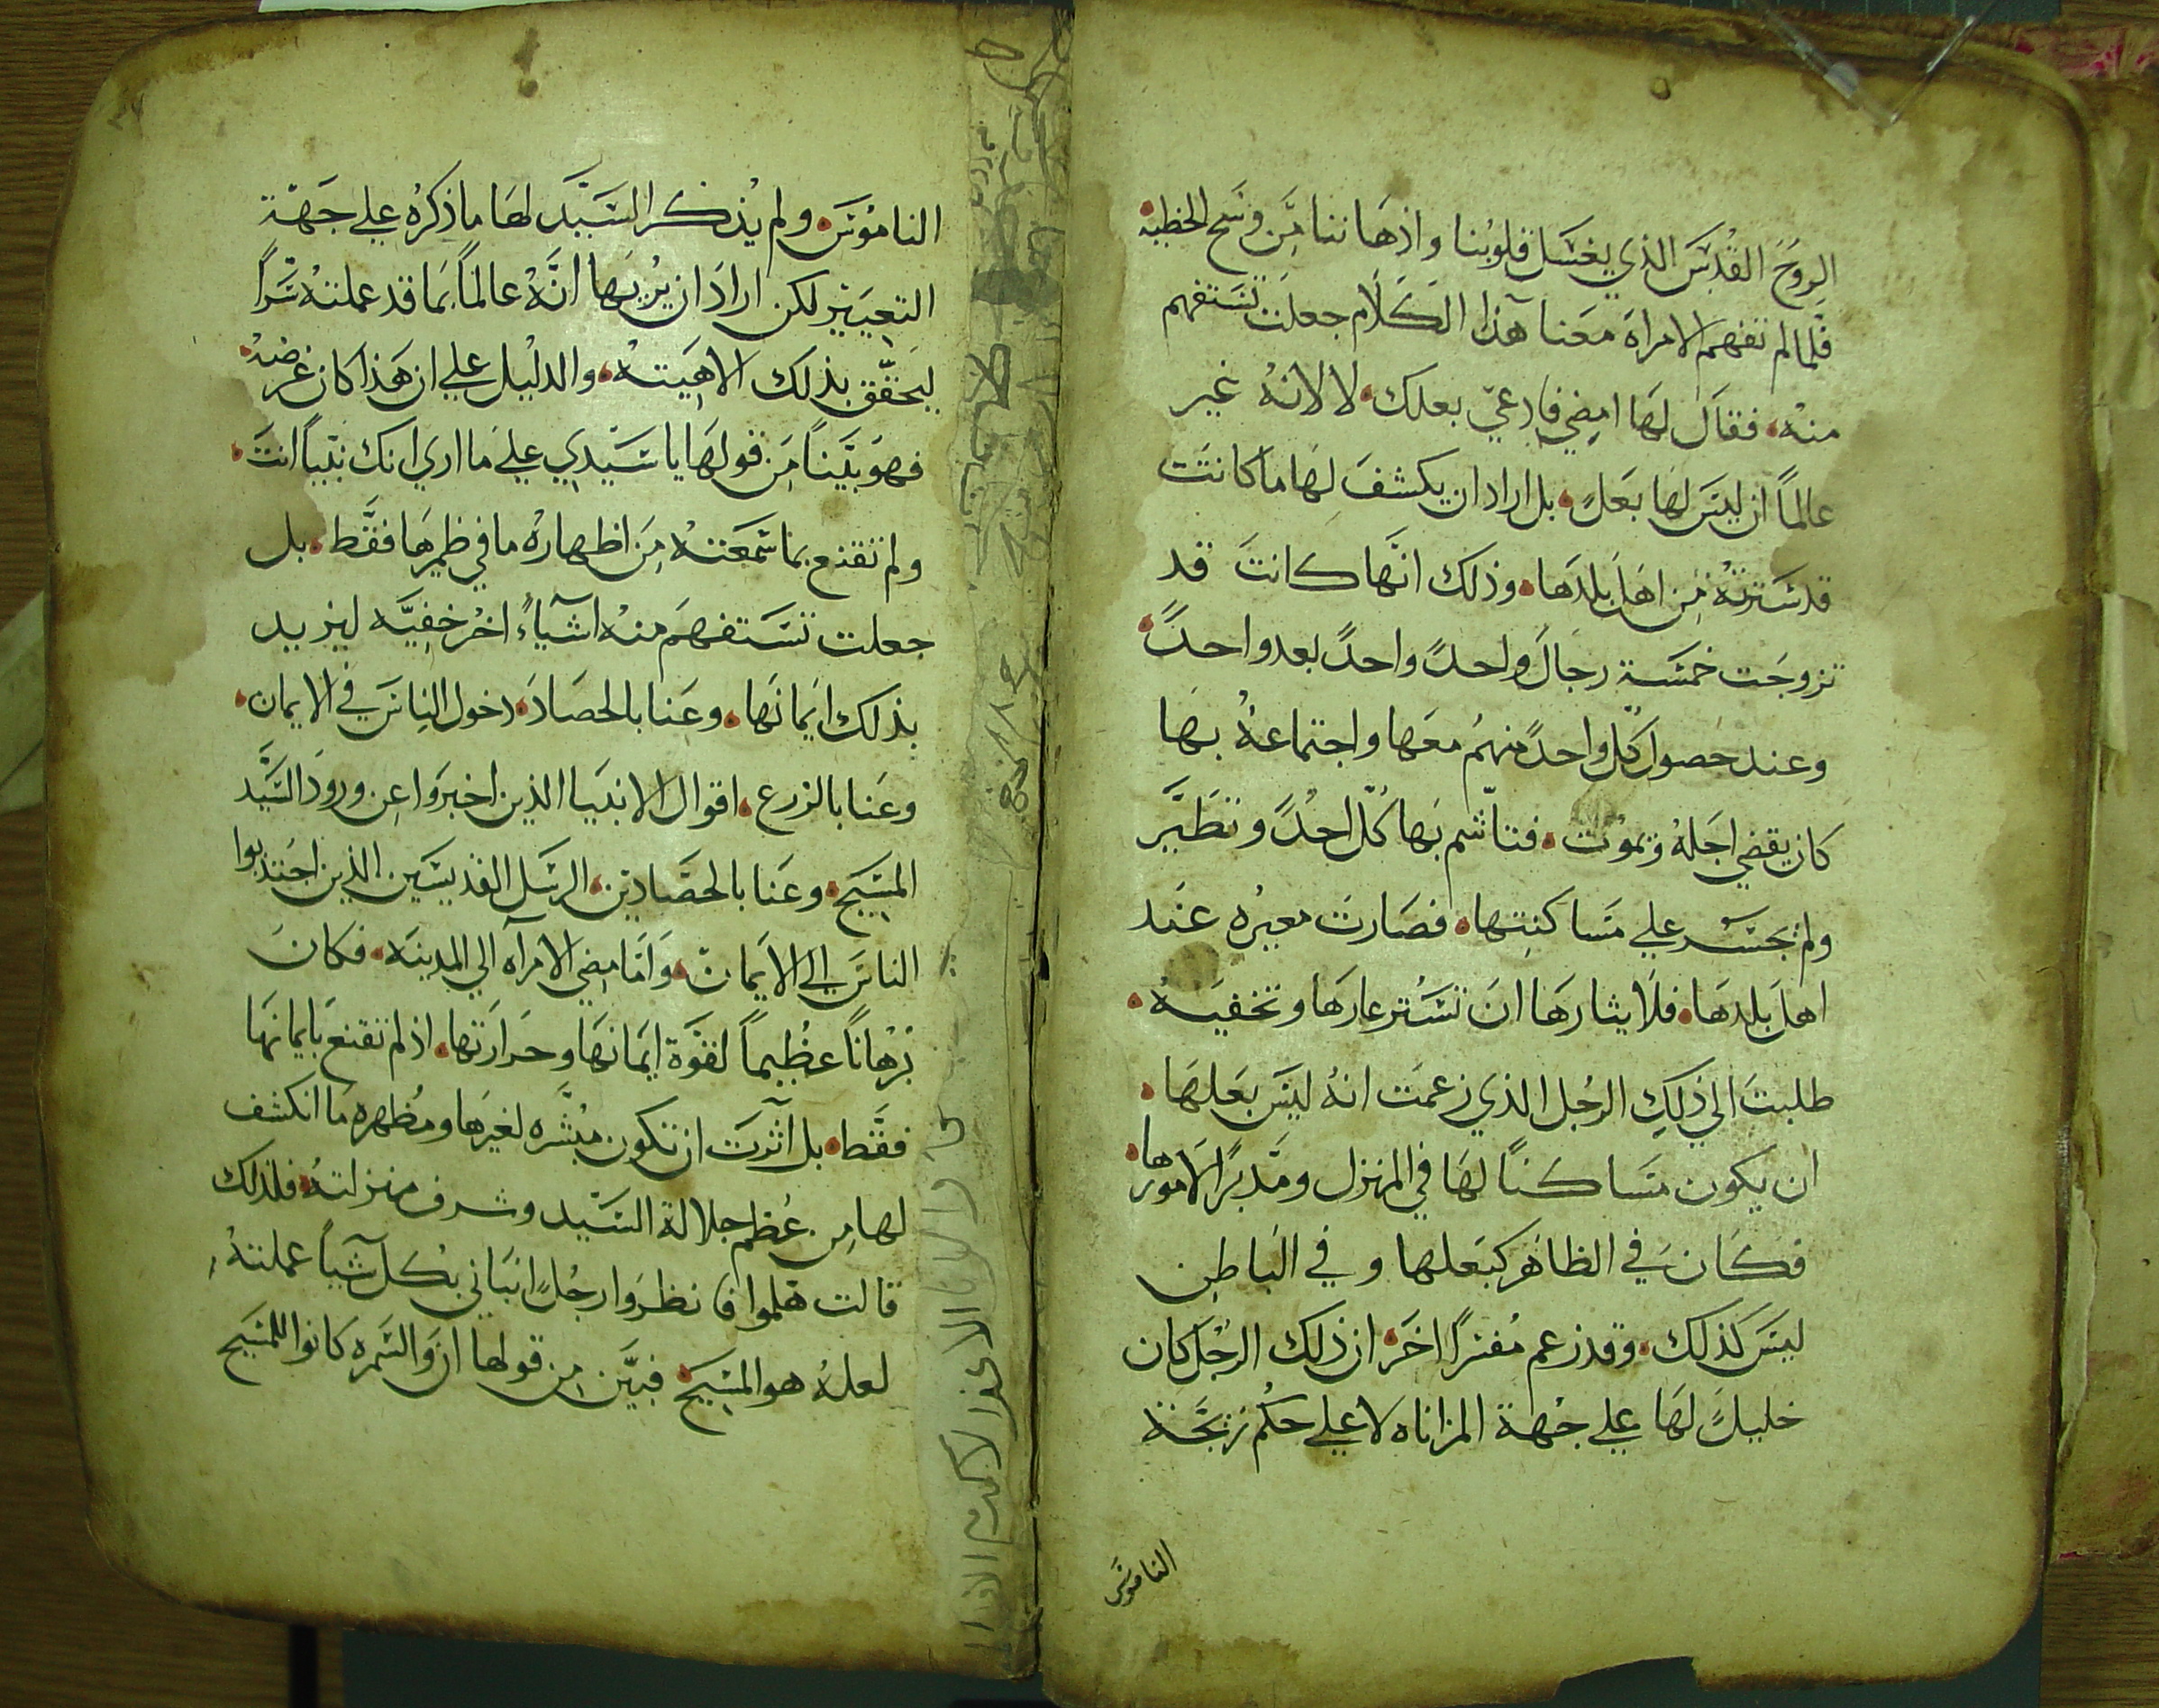 الروح القدس الذي يغسل قلوبنا واذهاننا من وسخ الخطيه
فلما لم تفهم الامراه معنا هذا الكلام جعلت تستفهم
منه، فقال لها امضي فادعي بعلك، لا لانه غير
عالماً ان ليس لها بعل، بل اراد ان يكشف لها ما كانت
قد سترته من اهل بلدها، وذلك انها كانت قد
تزوجت خمسة رجال واحداً واحداً بعد واحداً،
وعند حصول كل واحداً منهم معها واجتماعه بها
كان يقضي اجله ويموت، فتاشم بها كل احداً وتطير
ولم يجسر علي مساكنتها، فصارت معيره عند
اهل بلدها، فلايثارها ان تستر عارها وتخفيه،
طلبت الي ذلك الرجل الذي زعمت انه ليس بعلها،
ان يكون مساكناً لها في المنزل ومدبراً لامورها،
فكان في الظاهر كبعلها وفي الباطن
ليس كذلك، وقد زعم مفسراً اخر، ان ذلك الرجل كان
خليلاً لها علي جهة المزاناه لا علي حكم زيجة
الناموس
الناموس، ولم يذكر السيد لها ما ذكره علي جهة
التعيير لكن اراد ان يريها انه عالماً بما قد عملته سراً
ليحقق بذلك الاهيته، والدليل علي ان هذا كان غرضه،
فهو بيناً من قولها يا سيدي علي ما اري انك نبياً انت،
ولم تقنع بما سمعته من اظهاره ما في ضميرها فقط، بل
جعلت تستفهم منه اشياءً اخر خفيه ليزيد
بذلك ايمانها، وعنا بالحصاد، دخول الناس في الايمان،
وعنا بالزرع، اقوال الانبيا الذين اخبروا عن ورود السيد
المسيح، وعنا بالحصادين، الرسل القديسين الذين اجتدبوا
الناس الي الايمان، واما مضي الامراه الي المدينه، فكان
برهاناً عظيماً لقوة ايمانها وحرارتها، اذ لم تقنع بايمانها
فقط، بل آثرت ان تكون مبشره لغيرها ومظهره ما انكشف
لها من عظم جلالة السيد وشرف منزلته، فلذلك
قالت هلموا فانظروا رجلاً انباني بكل شياً عملته،
لعله هو المسيح، فبين من قولها ان والسمره كانوا للمسيح